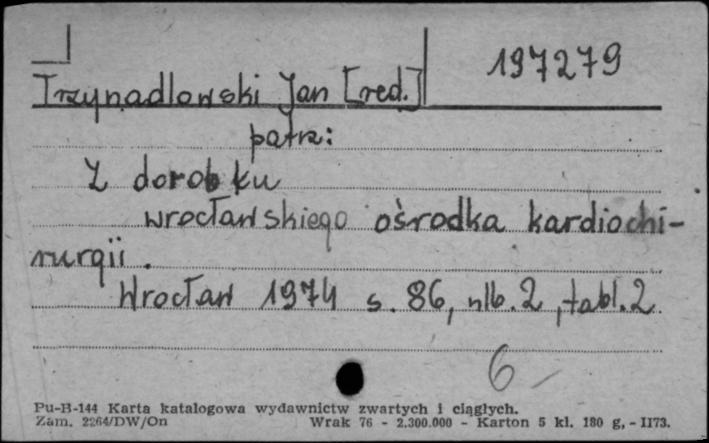 197279
Trzynadlowski Jan [red.]
patrz:
Z dorobku
wrocławskiego ośrodka kardiochi-
rurgii.
Wrocław 1974 s. 86, nlb. 2, tabl. 2
6-
Pu-B-144 Karta katalogowa wydawnictw zwartych i ciągłych.
Zam. 2264/DW/On Wrak 76 - 2.300.000 - Karton 5 kl. 180 g, - II73.